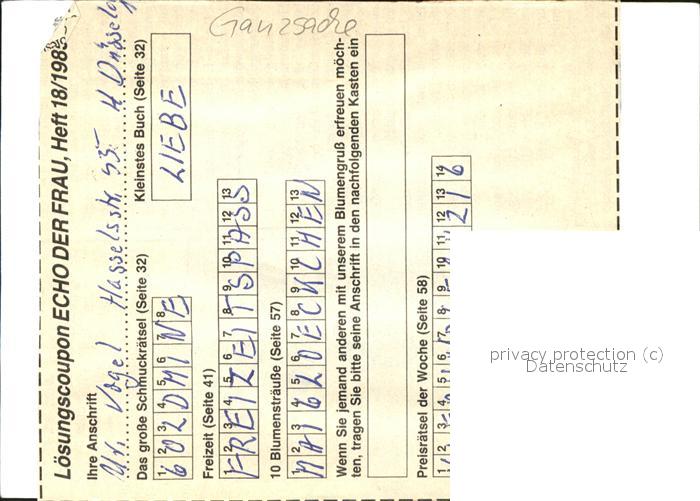 Ganzsache
Lösungscoupon ECHO DER FRAU, Heft 18/198
Ihre Anschrift
Vogel Hasselsstr. 4
Das große Schmuckrätsel (Seite 32)
1 2 3 4 5 6 7 8
GOLDMINE
Kleinstes Buch (Seite 32)
LIEBE
Freizeit (Seite 41)
1 2 3 4 5 6 7 8 9 10 11 12 13
FREIZEITSPASS
10 Blumensträuße (Seite 57)
1 2 3 4 5 6 7 8 9 10 11 12 13
MAIGLOECKCHEN
Wenn Sie jemand anderen mit unserem Blumengruß erfreuen möch-
ten, tragen Sie bitte seine Anschrift in den nachfolgenden Kasten ein
Preisrätsel der Woche (Seite 58)
1 2 3 4 5 6 7 8 9 10 11 12 13 14
216
privacy protection (c)
Datenschutz